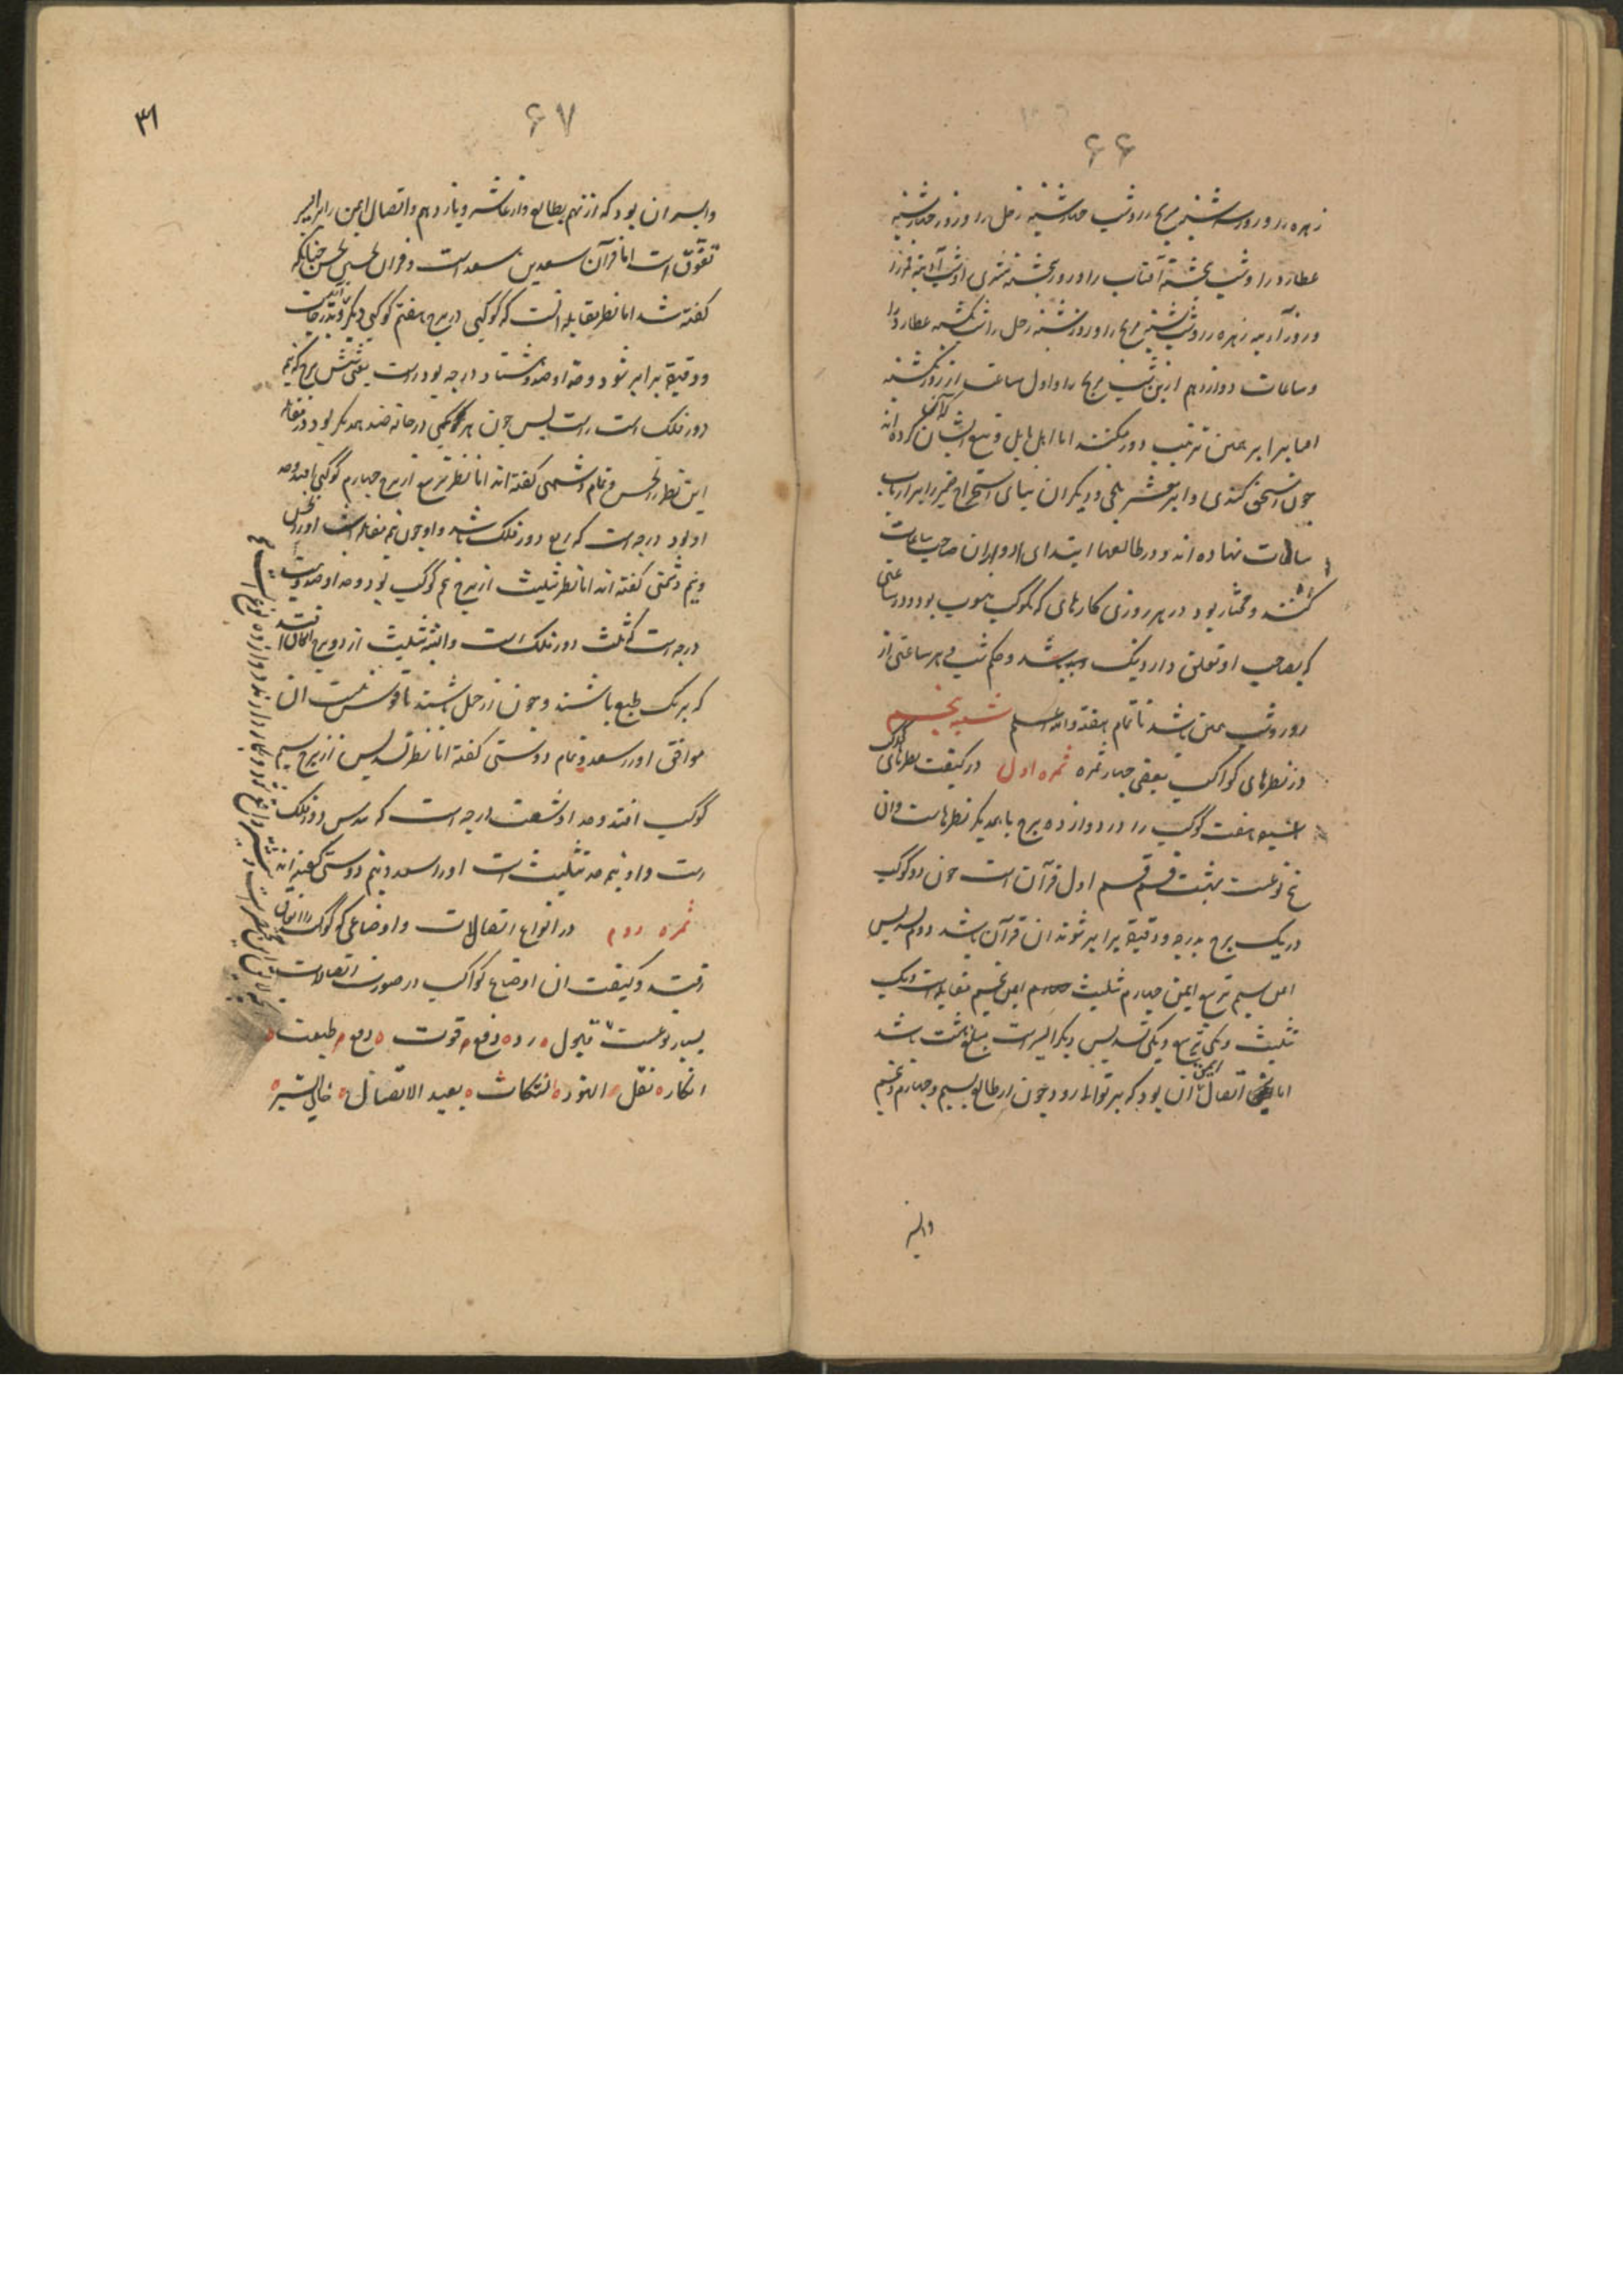 ۶۶
زهره را و روز سه شنبه مریخ را و شب چهارشنبه زحل را و روز چهارشنبه
عطارد را و شب پنجشنبه آفتاب را و روز پنجشنبه مشتری را و شب آدینه قمر را
و روز آدینه زهره را و شب شنبه مریخ را و روز شنبه زحل را شب یکشنبه عطارد را
و ساعات دوازدهم ازین شب مریخ را و اول ساعت از روز یکشنبه
برین ترتیب دور میکنند اما اهل بابل و تبع ایشان کرده اند
چون اسحق کندی و ابو معشر بلخی و دیگران بنای استخراج ضمیر را بر ارباب
ساعات نهاده اند و در طالعها ابتدای ادوار از آن صاحب ساعات
کنند و مختار بود در هر روزی کارهای که بکوکب منسوب بود و در ساعتی
که بصاحب او تعلق دارد نیک باشد و حکم شب فی هر ساعتی از
روز و شب همین باشد تا تمام هفته والله اعلم شعبه پنجم
در نظرهای کواکب یعنی چهار ثمره ثمره اول در کیفیت نظرهای کواکب
هفت کوکب را در دوازده برج با همدیکر نظرهاست و آن
پنج نوعست بهشت قسم قسم اول قرآن است چون دو کوکب
در یک برج بدرجه و دقیقه برابر شوند آن قرآن باشد دوم تسدیس
ایمن سیم تربیع ایمن چهارم تثلیث ایمن پنجم مقابله است و یک
تثلیث و یکی تربیع و یکی تسدیس دیکر ایسر است مبلغ هشت باشد
اما اتصال ایمن آن بود که بر توالی رود چون از طالع بسیم و چهارم و پنجم
وایسر
۶۷
۳۱
وایسر آن بود که از نهم بطالع و از عاشر و یازدهم و اتصال ایمن را بر ایسر
تفوق است اما قرآن سعدین سعد است و قران نحسین نحس چنانکه
کفته شد اما نظر مقابله آنست که کوکبی در برج هفتم کوکبی دیکر افتد بدرجات
و دقیقه برابر شود و حد او صد و هشتاد درجه بود راست یعنی شش برج که نیم
دور فلک است راست پس چون هر کوکبی در خانه ضد همدیکر بود در مقابله
این نظر را نحس و تمام دشمنی کفته اند اما نظر تربیع از برج چهارم کوکبی افتد و حد
او نود درجه است که ربع دور فلک باشد و او چون نیم مقابله است او را نحس
و نیم دشمنی کفته اند اما نظر تثلیث از برج پنجم کوکب بود و حد او صد و بیست
درجه است که ثلث دور فلک است و البته تثلیث از دو برج اتفاق افتد
که بر یک طبع باشند و چون از حمل باشند تا قوس نسبت آن
موافق او را سعد و تمام دوستی کفته اما نظر تسدیس از برج سیم
کوکب افتد و حد او شصت درجه است که سدس دور فلک
است و او نیمه تثلیث است او را سعد و نیم دوستی کفته اند
ثمره دوم در انواع اتصالات و اوضاعی که کوکب را اتفاق
افتد و کیفیت آن اوضاع کواکب در صورت اتصالات
بسیار نوعست قبول رد دفع قوت دفع طبیعت
انکار نقل النور انتکاث بعید الاتصال خالی السیر